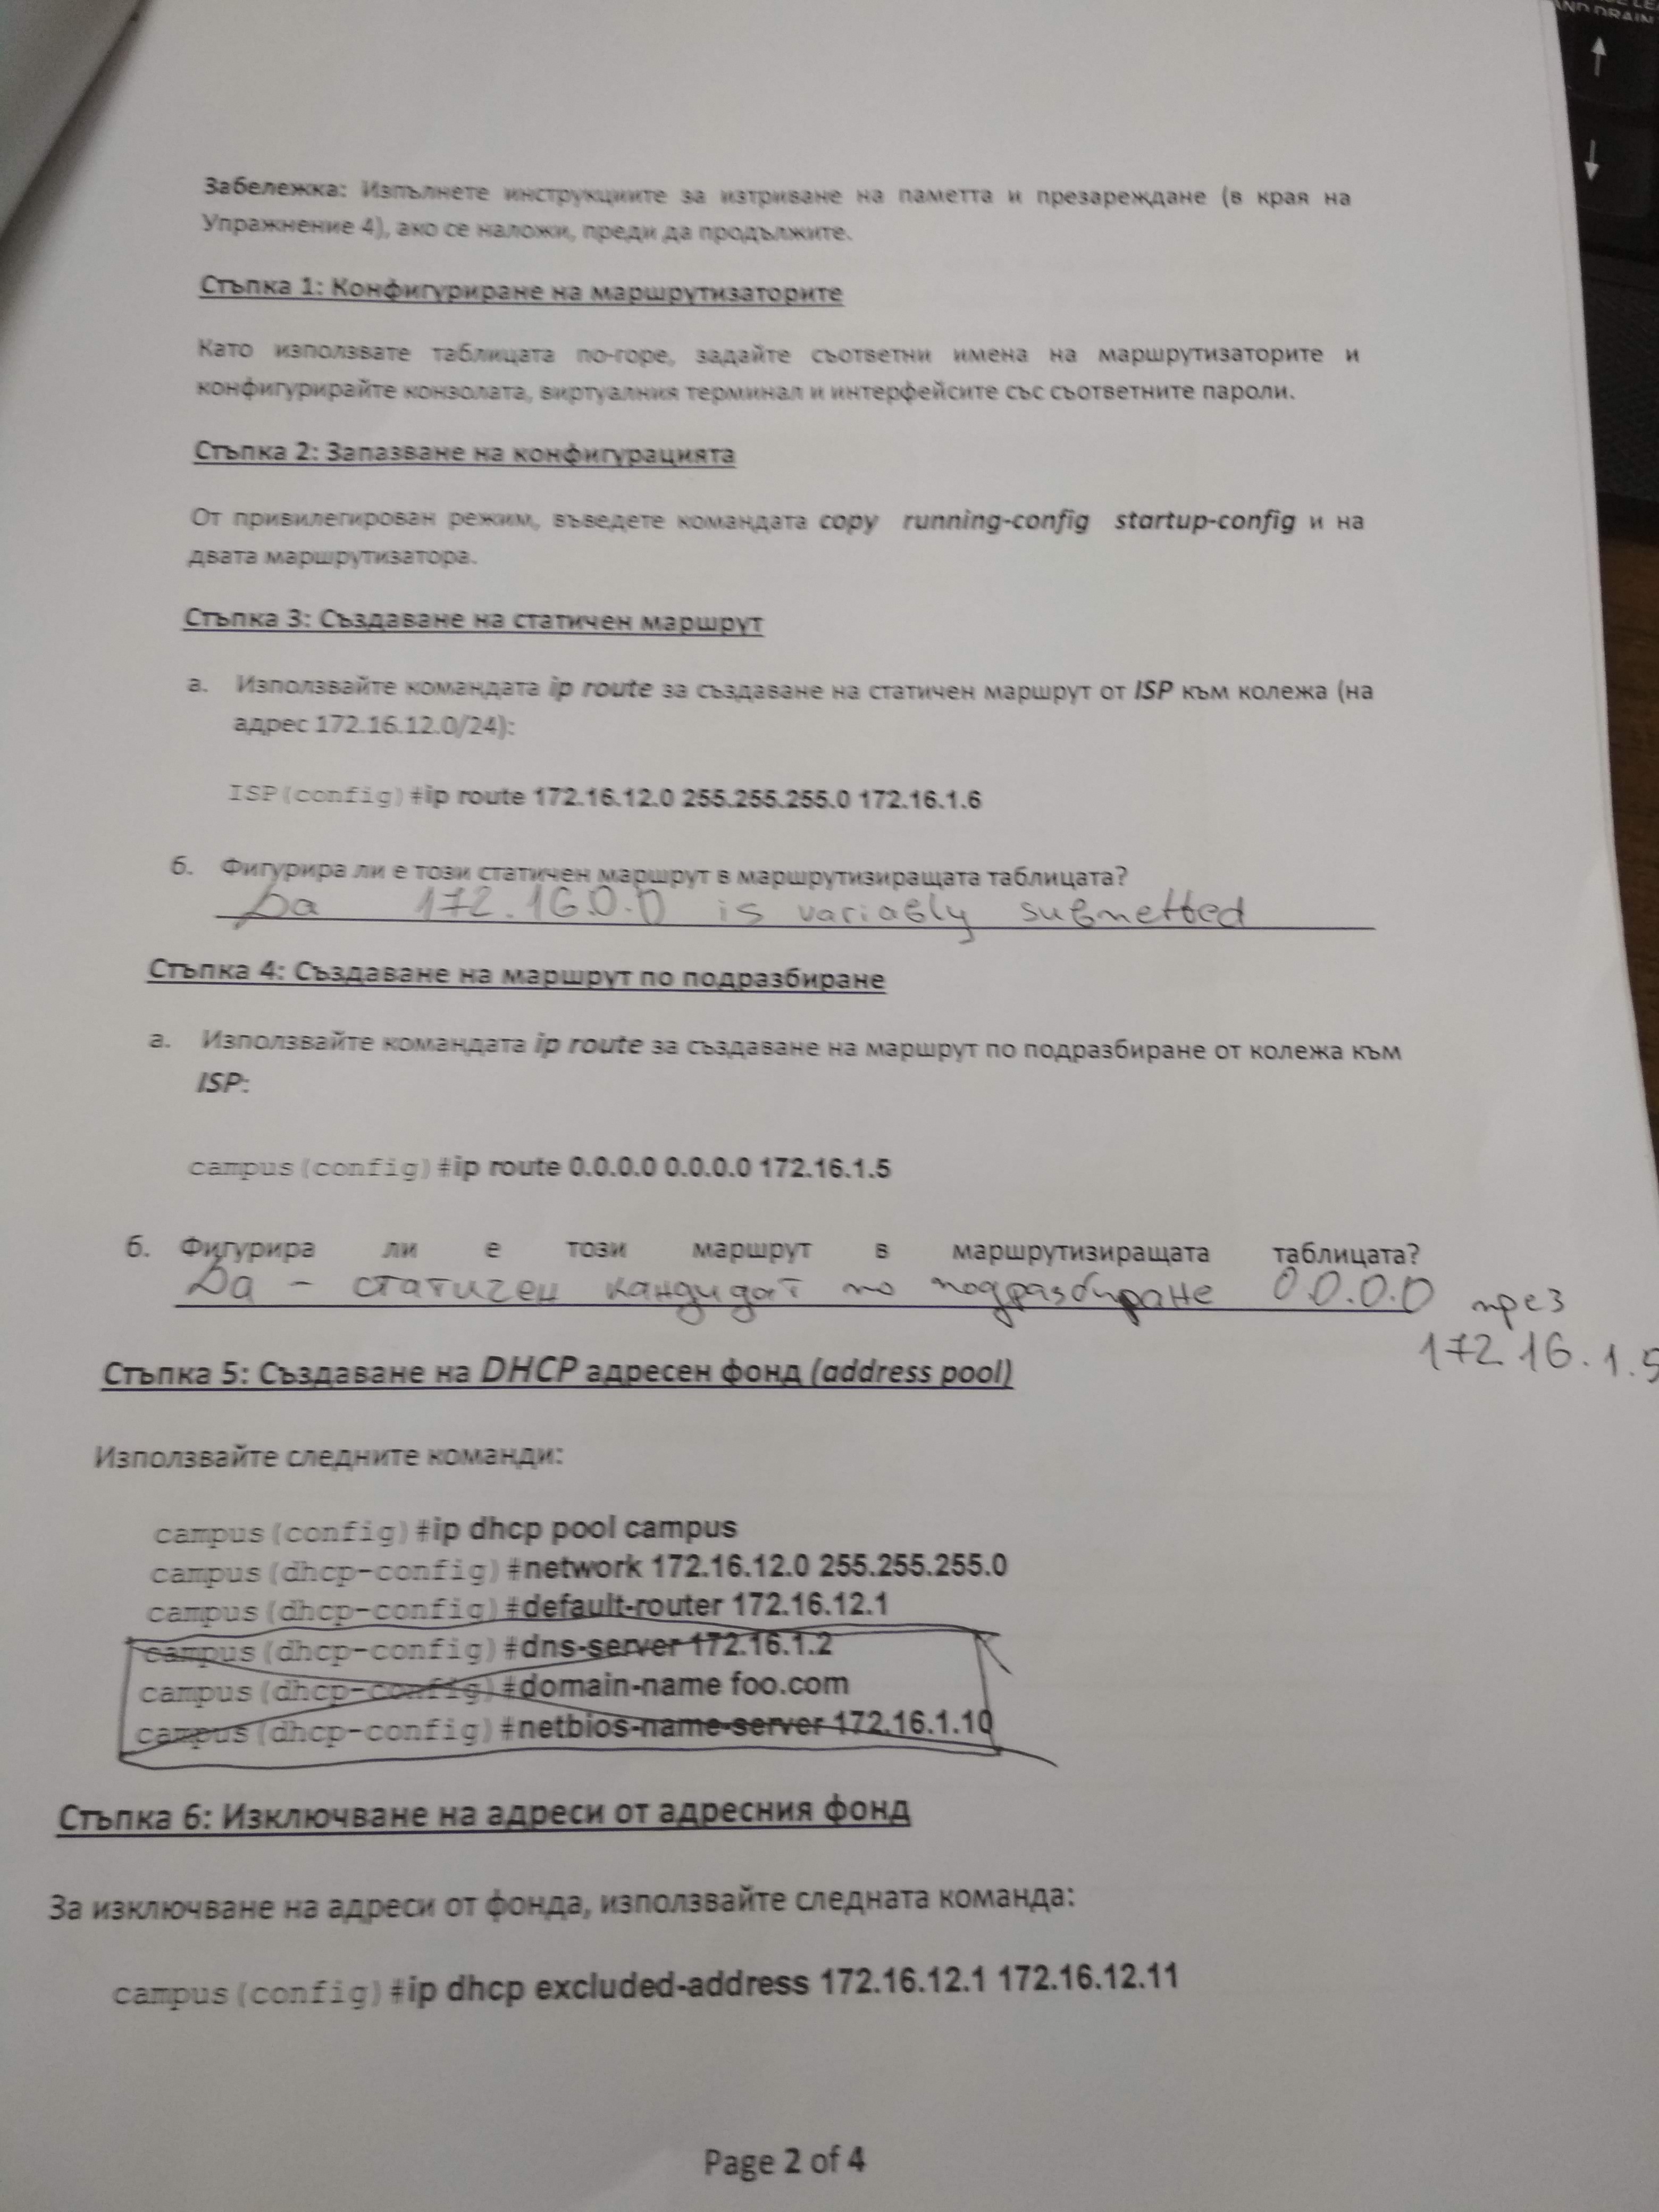 AND DRAIN
Забележка: Изпълнете инструкциите за изтриване на паметта и презареждане (в края на
Упражнение 4), ако се наложи, преди да продължите.
Стъпка 1: Конфигуриране на маршрутизаторите
Като използвате таблицата по-горе, задайте съответни имена на маршрутизаторите и
конфигурирайте конзолата, виртуалния терминал и интерфейсите със съответните пароли.
Стъпка 2: Запазване на конфигурацията
От привилегирован режим, въведете командата copy running-config startup-config и на
двата маршрутизатора.
Стъпка 3: Създаване на статичен маршрут
а. Използвайте командата ip route за създаване на статичен маршрут от ISP към колежа (на
адрес 172.16.12.0/24):
ISP(config)#ip route 172.16.12.0 255.255.255.0 172.16.1.6
б. Фигурира ли е този статичен маршрут в маршрутизиращата таблицата?
Да 172.16.0.0 is variably submetted
Стъпка 4: Създаване на маршрут по подразбиране
а. Използвайте командата ip route за създаване на маршрут по подразбиране от колежа към
ISP:
campus(config)#ip route 0.0.0.0 0.0.0.0 172.16.1.5
б. Фигурира ли е този маршрут в маршрутизиращата таблицата?
Да - статичен кандидат по подразбиране 0.0.0.0 през
172.16.1.5
Стъпка 5: Създаване на DHCP адресен фонд (address pool)
Използвайте следните команди:
campus(config)#ip dhcp pool campus
campus(dhcp-config)#network 172.16.12.0 255.255.255.0
campus(dhcp-config)#default-router 172.16.12.1
campus(dhcp-config)#dns-server 172.16.1.2
campus(dhcp-config)#domain-name foo.com
campus(dhcp-config)#netbios-name-server 172.16.1.10
Стъпка 6: Изключване на адреси от адресния фонд
За изключване на адреси от фонда, използвайте следната команда:
campus(config)#ip dhcp excluded-address 172.16.12.1 172.16.12.11
Page 2 of 4